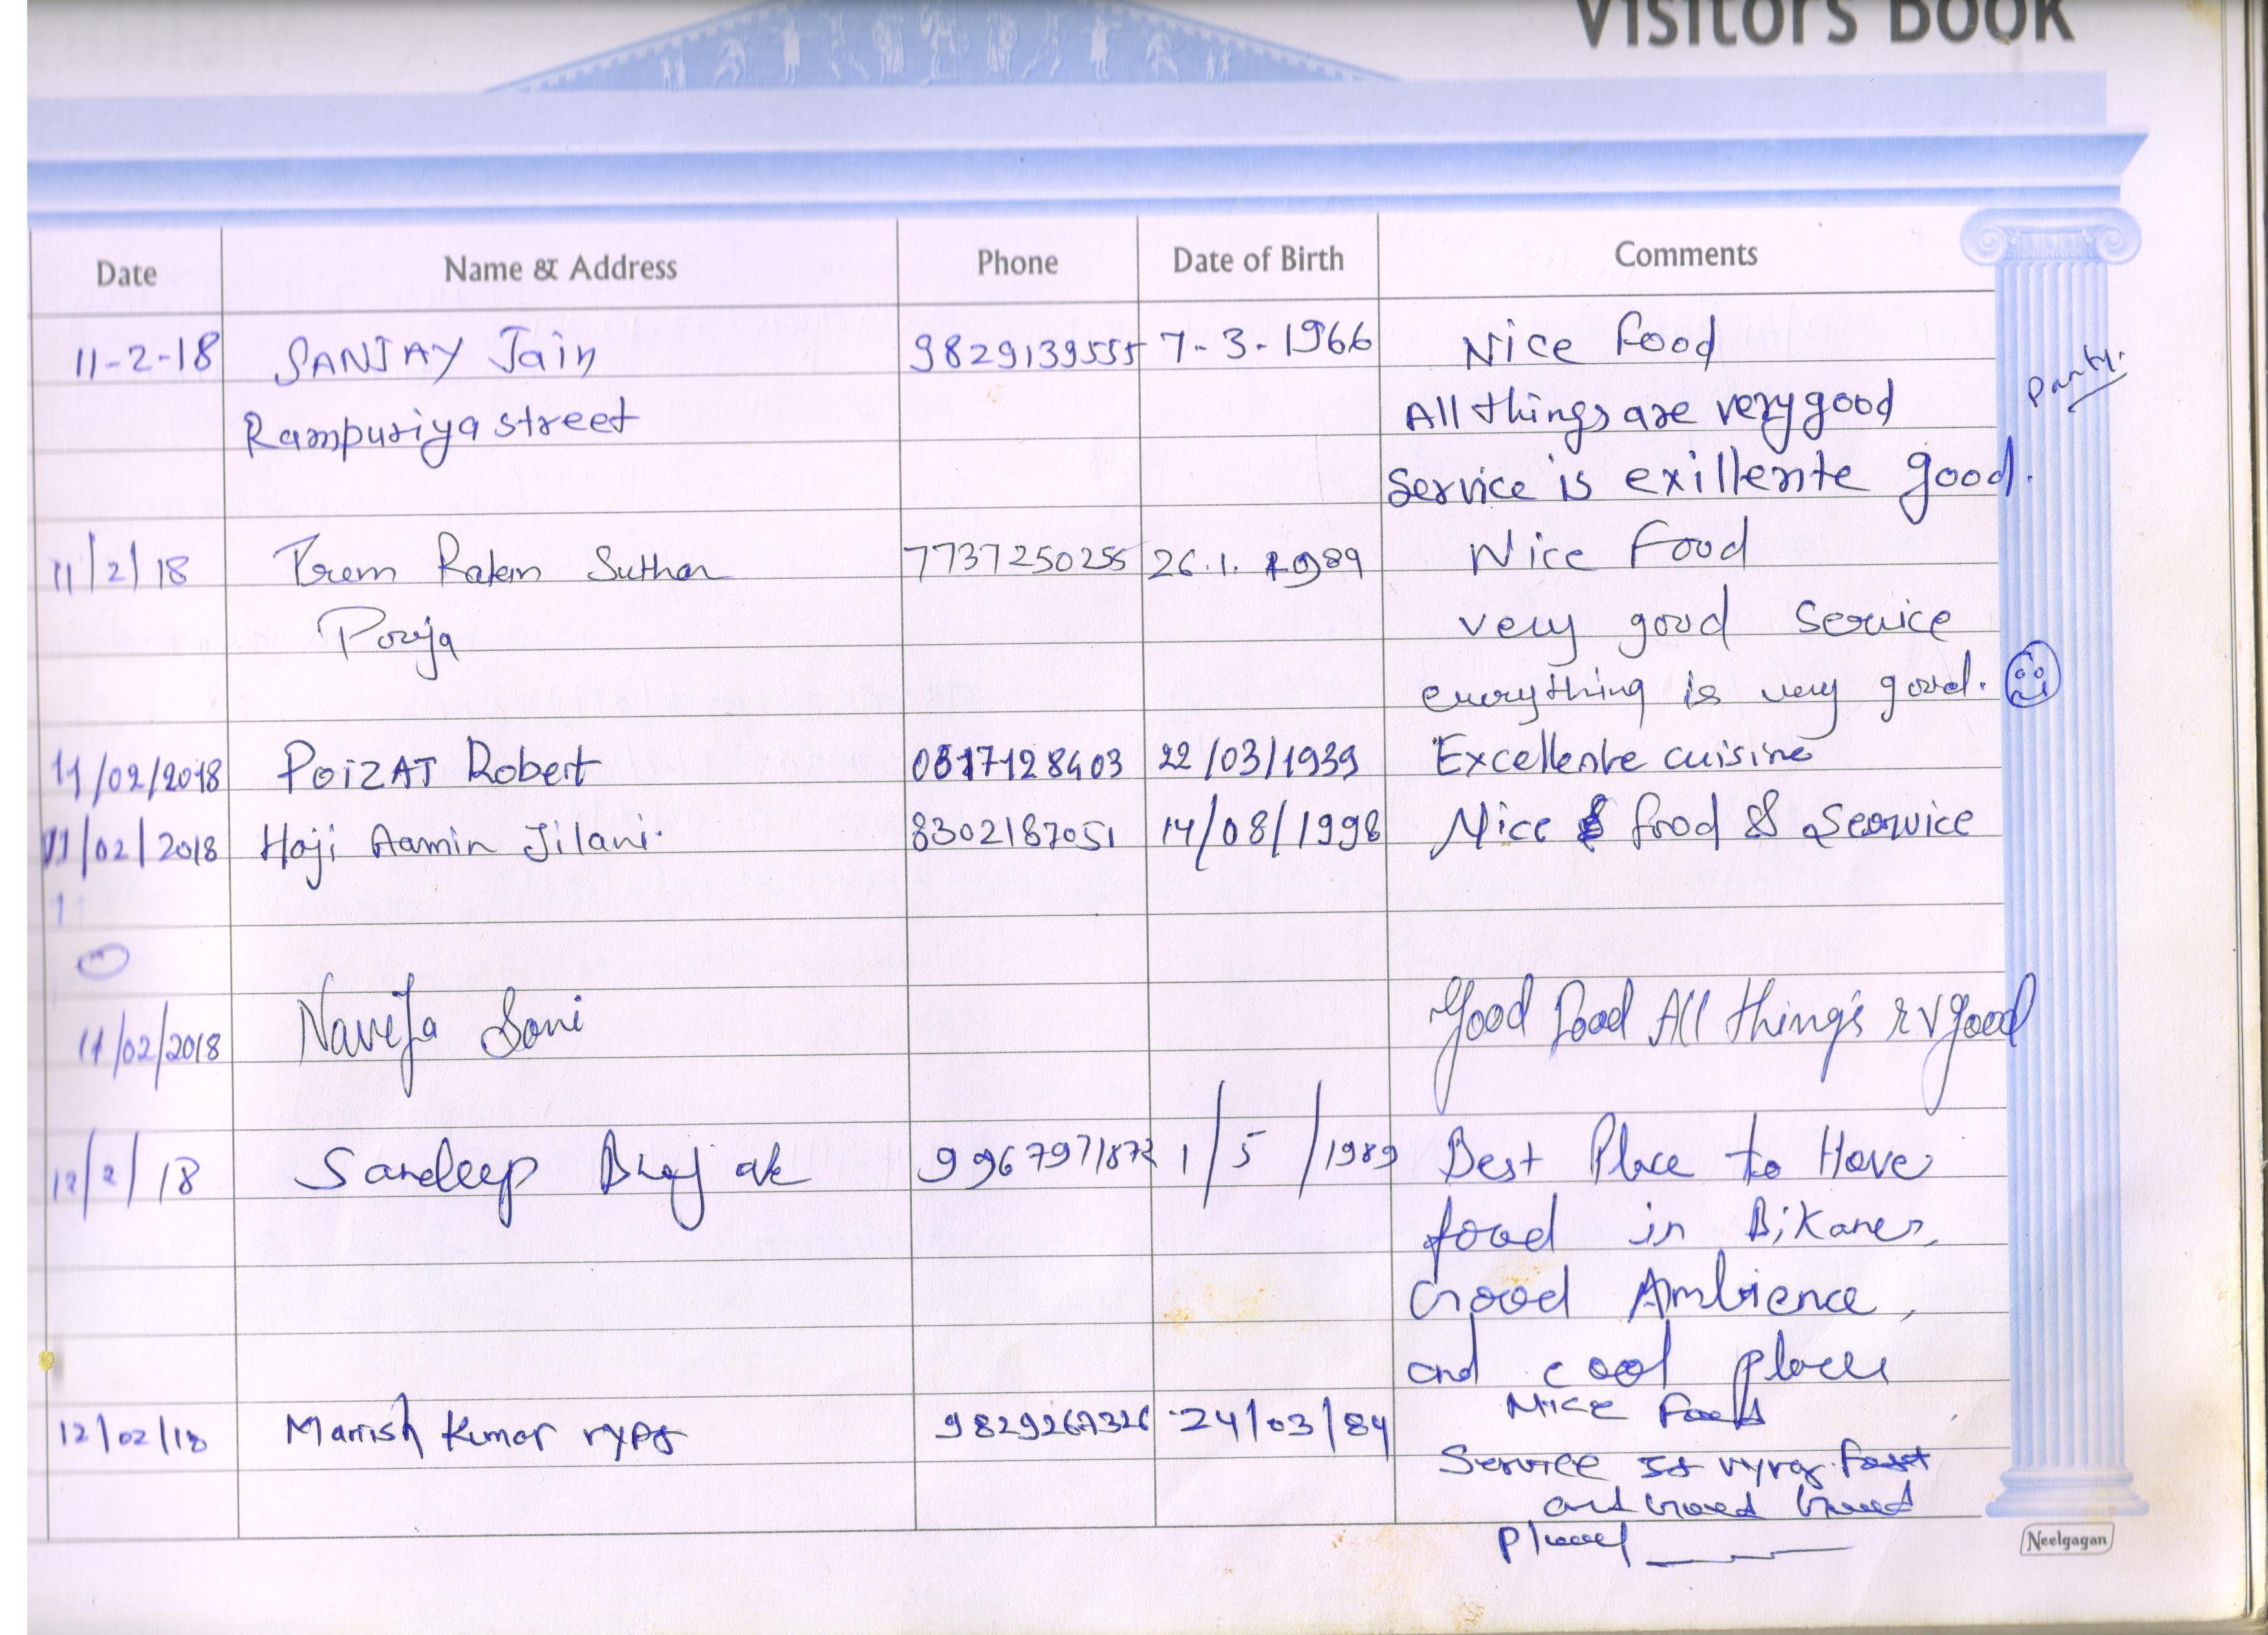 Visitors Book
Date Name & Address Phone Date of Birth Comments
11-2-18 SANJAY Jain 9829139555 7-3-1966 Nice food
Rampuriya street All things are very good
Party.
Service is exillente good.
11/2/18 Prem Ratan Suthar 7737250255 26.1.1989 Nice Food
Pooja very good Service
everything is very good.
11/02/2018 POIZAT Robert 0617128403 22/03/1939 Excellente cuisine
11/02/2018 Haji Aamin Jilani. 8302187051 14/08/1998 Nice food & Seorvice
11/02/2018 Soni Good food All thing's r v good
12/2/18 Sandeep 9967971872 1/5/1989 Best Place to Have
food in Bikaner,
Good Ambience,
and cool place
12/02/18 Manish Kumar 24/03/84 Nice Food
Service fast
and Good
Neelgagan